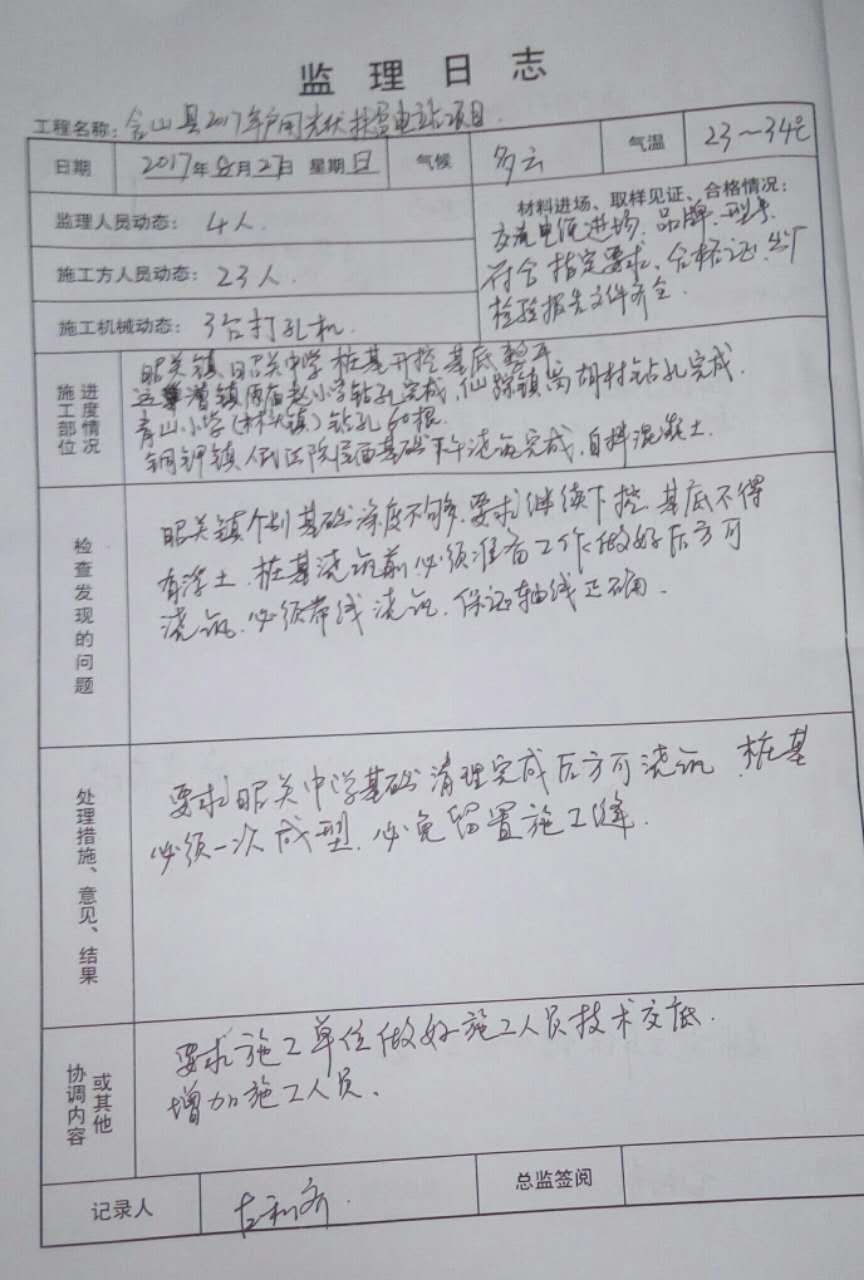 监理日志
工程名称：含山县2017年户用光伏扶贫电站项目.
日期 2017年8月27日 星期日 气候 多云 气温 23～34℃
监理人员动态： 4人.
施工方人员动态： 23人.
施工机械动态： 3台打孔机.
材料进场、取样见证、合格情况：
交流电缆进场，品牌、型号，
符合指定要求、合格证、出厂
检验报告文件齐全.
施工部位进度情况
昭关镇昭关中学桩基开挖基底整平
运漕镇 小学钻孔完成，仙踪镇 胡村钻孔完成.
青山小学（林头镇）钻孔60根.
铜闸镇人民医院屋面基础 浇筑完成，自拌混凝土.
检查发现的问题
昭关镇个别基础深度不够，要求继续下挖，基底不得
有浮土，桩基浇筑前必须准备工作做好后方可
浇筑，必须带线浇筑，保证轴线正确.
处理措施、意见、结果
要求昭关中学基础清理完成后方可浇筑，桩基
必须一次成型，必免留置施工缝.
协调内容或其他
要求施工单位做好施工人员技术交底.
增加施工人员.
记录人 总监签阅